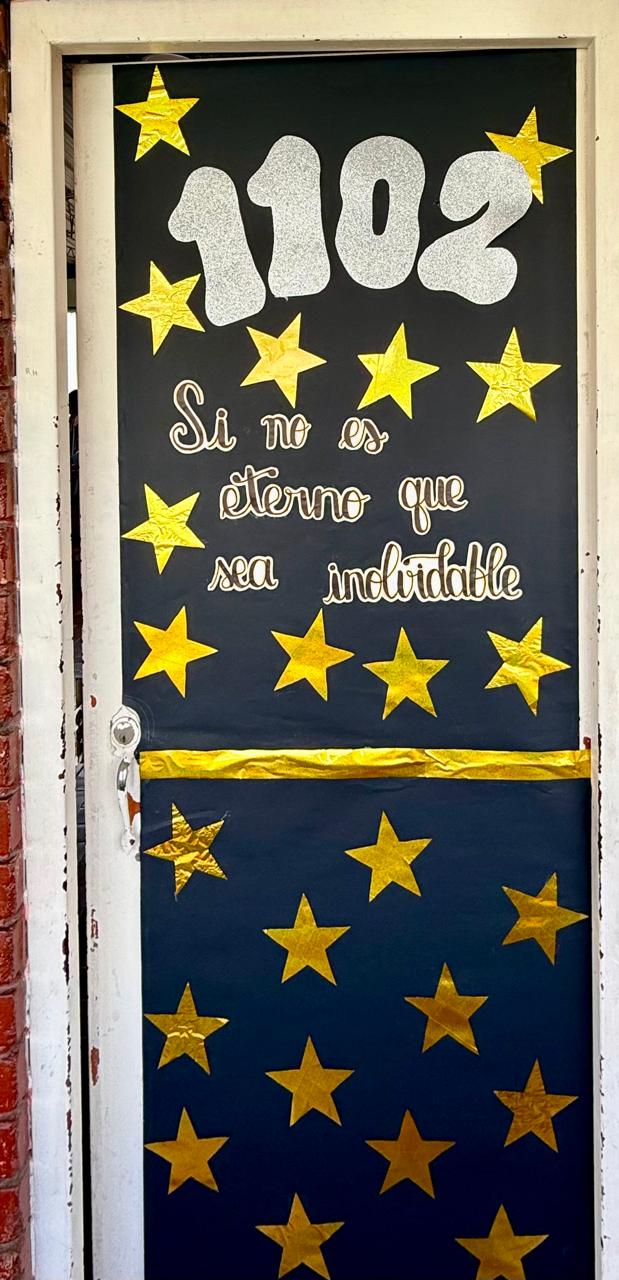 1102
Si no es
eterno que
sea inolvidable